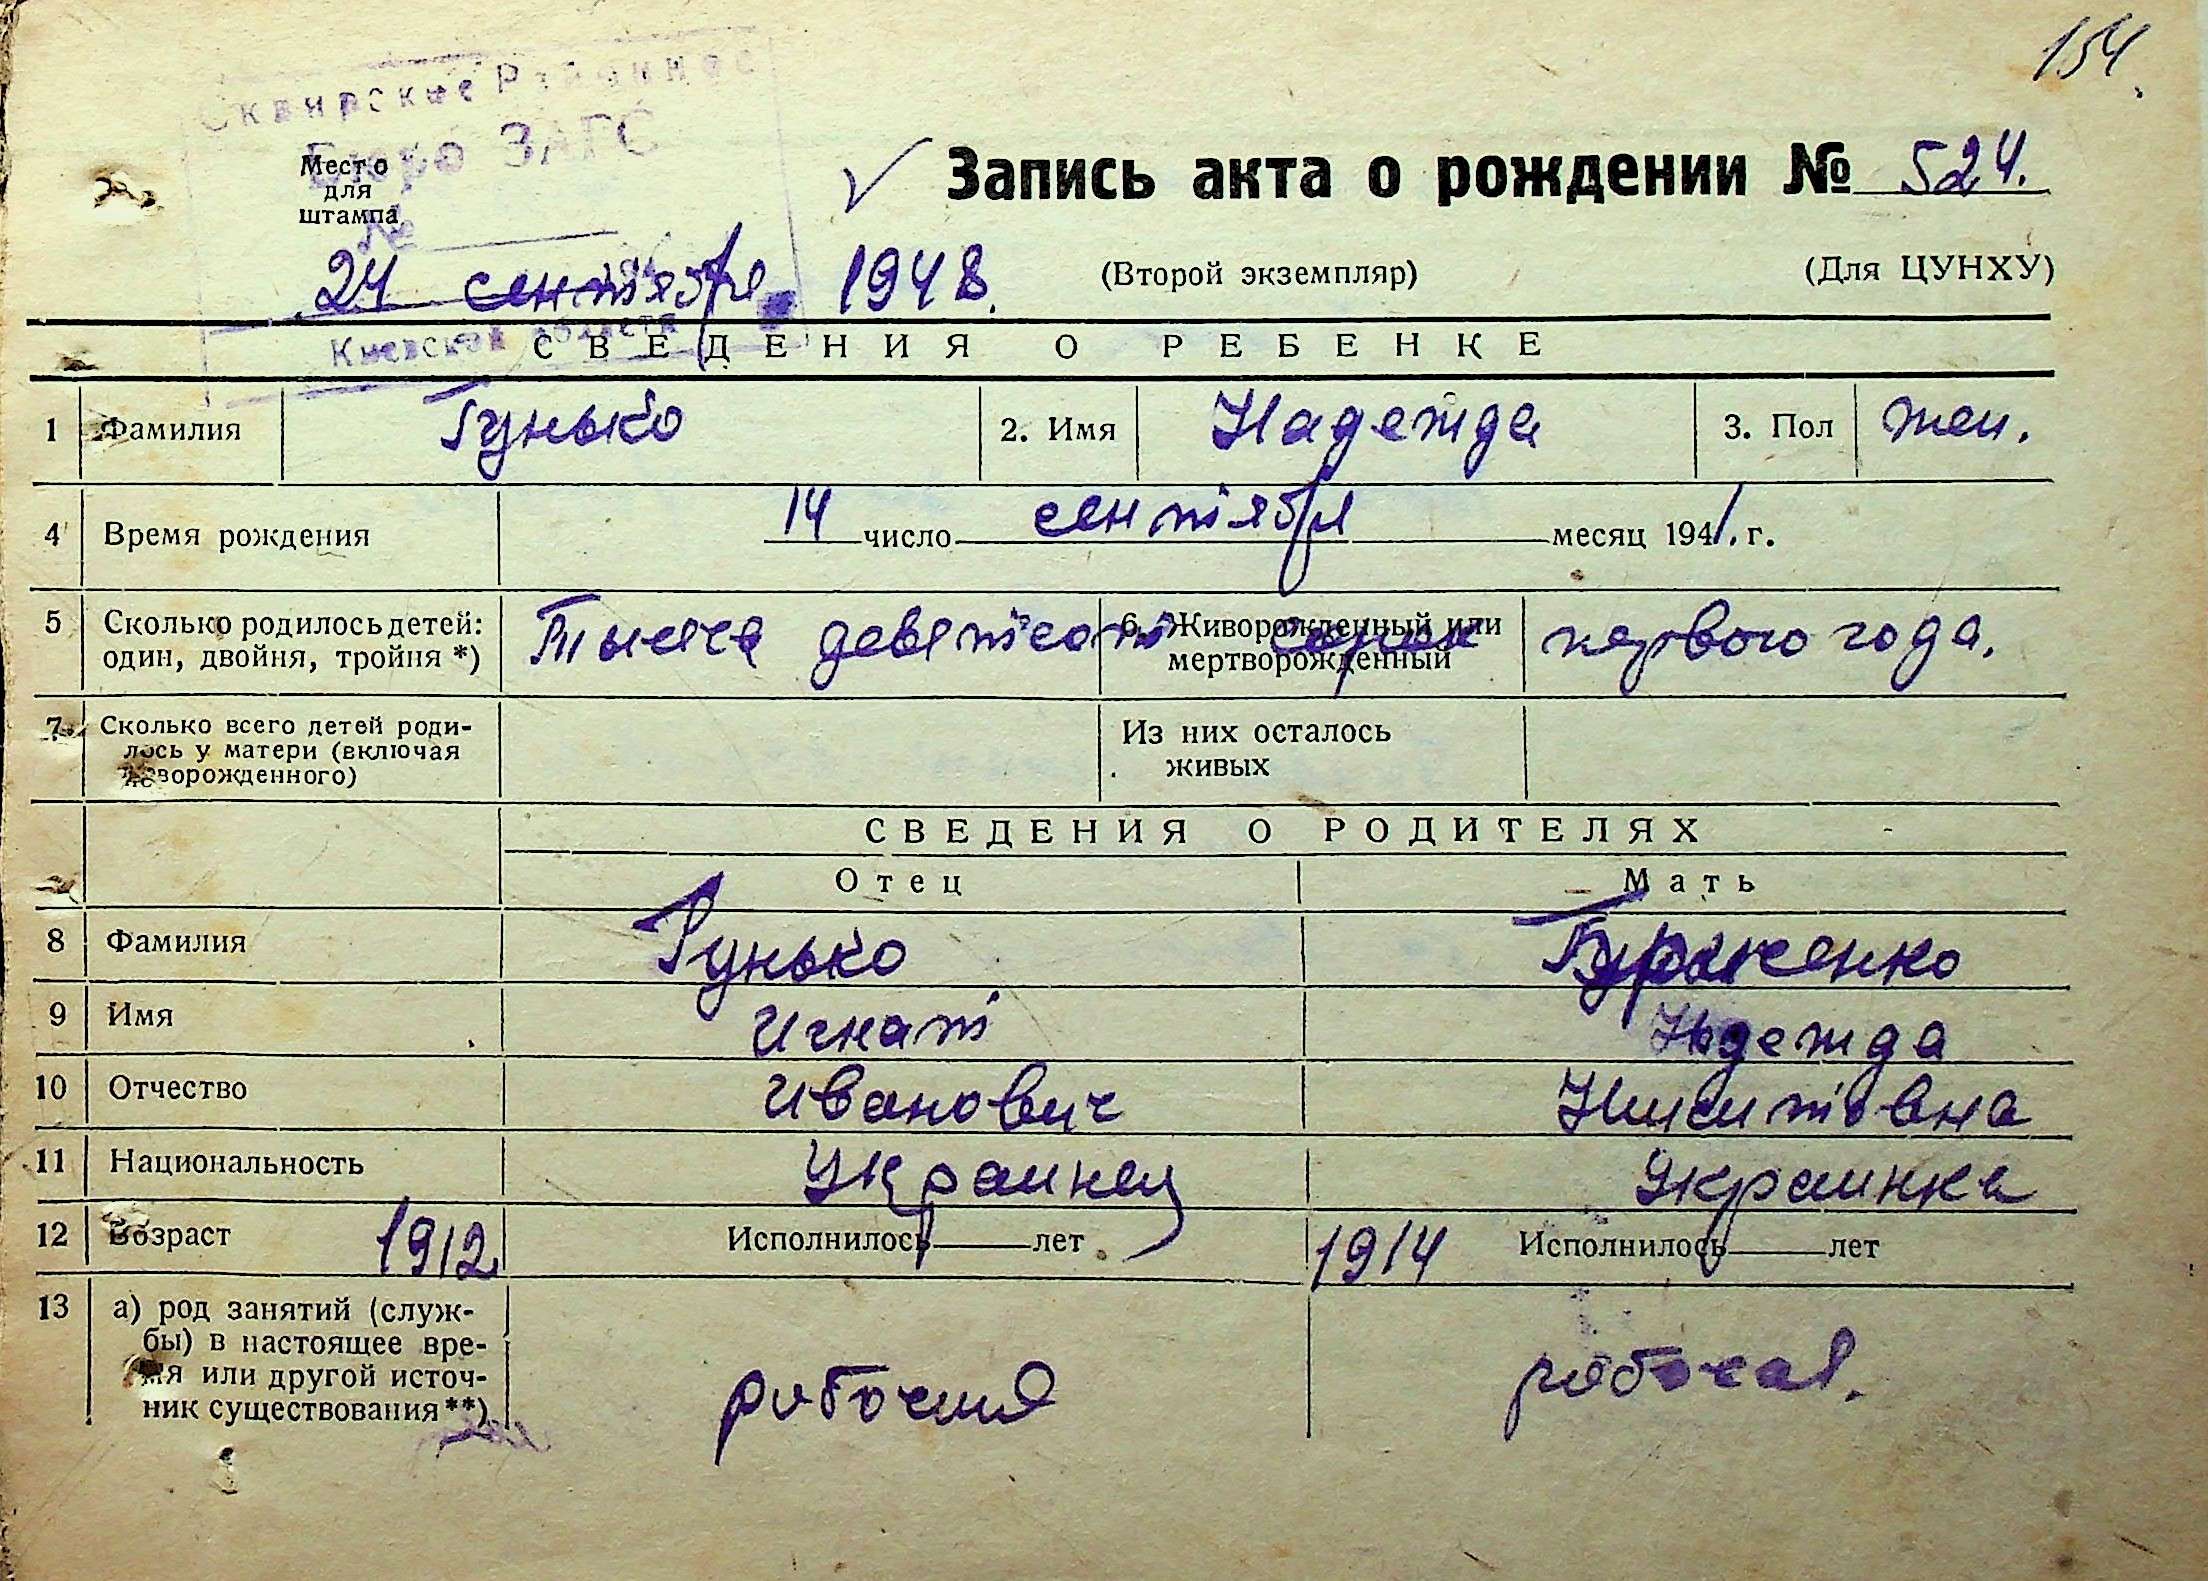 154
Сквирское Районное
Бюро ЗАГС
Место
для
штампа
№
Запись акта о рождении № 524.
24 сентября 1948.
(Второй экземпляр) (Для ЦУНХУ)
Киевской области
СВЕДЕНИЯ О РЕБЕНКЕ
1 Фамилия Гунько 2. Имя Надежда 3. Пол жен.
4 Время рождения 14 число сентября месяц 1941. г.
5 Сколько родилось детей: 6. Живорожденный или
один, двойня, тройня *) мертворожденный
Тысяча девятсот сорок первого года.
7 Сколько всего детей роди- Из них осталось
лось у матери (включая живых
новорожденного)
СВЕДЕНИЯ О РОДИТЕЛЯХ
Отец Мать
8 Фамилия Гунько
9 Имя Игнат Надежда
10 Отчество Иванович Никитовна
11 Национальность Украинец Украинка
12 Возраст 1912 Исполнилось лет 1914 Исполнилось лет
13 а) род занятий (служ-
бы) в настоящее вре-
мя или другой источ-
ник существования **)
рабочий рабочая.